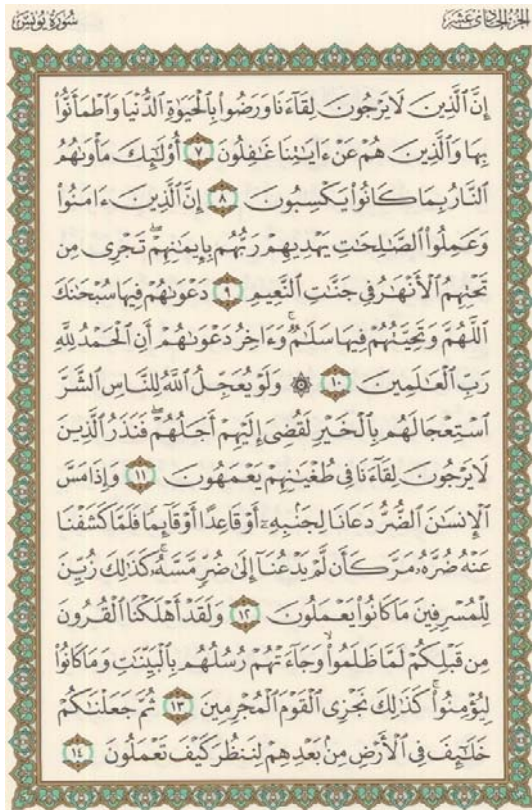 الجزء الحادي عشر
سورة يونس
إِنَّ ٱلَّذِينَ لَا يَرْجُونَ لِقَآءَنَا وَرَضُوا۟ بِٱلْحَيَوٰةِ ٱلدُّنْيَا وَٱطْمَأَنُّوا۟
بِهَا وَٱلَّذِينَ هُمْ عَنْ ءَايَٰتِنَا غَٰفِلُونَ ٧ أُو۟لَٰٓئِكَ مَأْوَىٰهُمُ
ٱلنَّارُ بِمَا كَانُوا۟ يَكْسِبُونَ ٨ إِنَّ ٱلَّذِينَ ءَامَنُوا۟
وَعَمِلُوا۟ ٱلصَّٰلِحَٰتِ يَهْدِيهِمْ رَبُّهُم بِإِيمَٰنِهِمْ ۖ تَجْرِى مِن
تَحْتِهِمُ ٱلْأَنْهَٰرُ فِى جَنَّٰتِ ٱلنَّعِيمِ ٩ دَعْوَىٰهُمْ فِيهَا سُبْحَٰنَكَ
ٱللَّهُمَّ وَتَحِيَّتُهُمْ فِيهَا سَلَٰمٌ ۚ وَءَاخِرُ دَعْوَىٰهُمْ أَنِ ٱلْحَمْدُ لِلَّهِ
رَبِّ ٱلْعَٰلَمِينَ ١٠ ۞ وَلَوْ يُعَجِّلُ ٱللَّهُ لِلنَّاسِ ٱلشَّرَّ
ٱسْتِعْجَالَهُم بِٱلْخَيْرِ لَقُضِىَ إِلَيْهِمْ أَجَلُهُمْ ۖ فَنَذَرُ ٱلَّذِينَ
لَا يَرْجُونَ لِقَآءَنَا فِى طُغْيَٰنِهِمْ يَعْمَهُونَ ١١ وَإِذَا مَسَّ
ٱلْإِنسَٰنَ ٱلضُّرُّ دَعَانَا لِجَنۢبِهِۦٓ أَوْ قَاعِدًا أَوْ قَآئِمًا فَلَمَّا كَشَفْنَا
عَنْهُ ضُرَّهُۥ مَرَّ كَأَن لَّمْ يَدْعُنَآ إِلَىٰ ضُرٍّ مَّسَّهُۥ ۚ كَذَٰلِكَ زُيِّنَ
لِلْمُسْرِفِينَ مَا كَانُوا۟ يَعْمَلُونَ ١٢ وَلَقَدْ أَهْلَكْنَا ٱلْقُرُونَ
مِن قَبْلِكُمْ لَمَّا ظَلَمُوا۟ ۙ وَجَآءَتْهُمْ رُسُلُهُم بِٱلْبَيِّنَٰتِ وَمَا كَانُوا۟
لِيُؤْمِنُوا۟ ۚ كَذَٰلِكَ نَجْزِى ٱلْقَوْمَ ٱلْمُجْرِمِينَ ١٣ ثُمَّ جَعَلْنَٰكُمْ
خَلَٰٓئِفَ فِى ٱلْأَرْضِ مِنۢ بَعْدِهِمْ لِنَنظُرَ كَيْفَ تَعْمَلُونَ ١٤